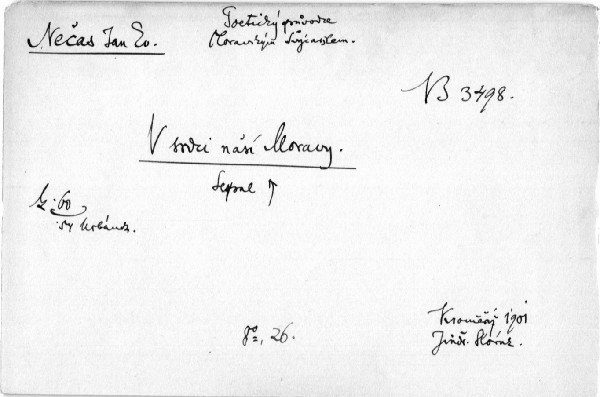 Nečas Jan Ev.
Poetický průvodce
Moravským Švýcarskem.
NB 3498.
V srdci naší Moravy.
Sepsal ↑
60
54 Urbánek.
8°, 26.
Kroměříž 1901
Jindř. Slovák.